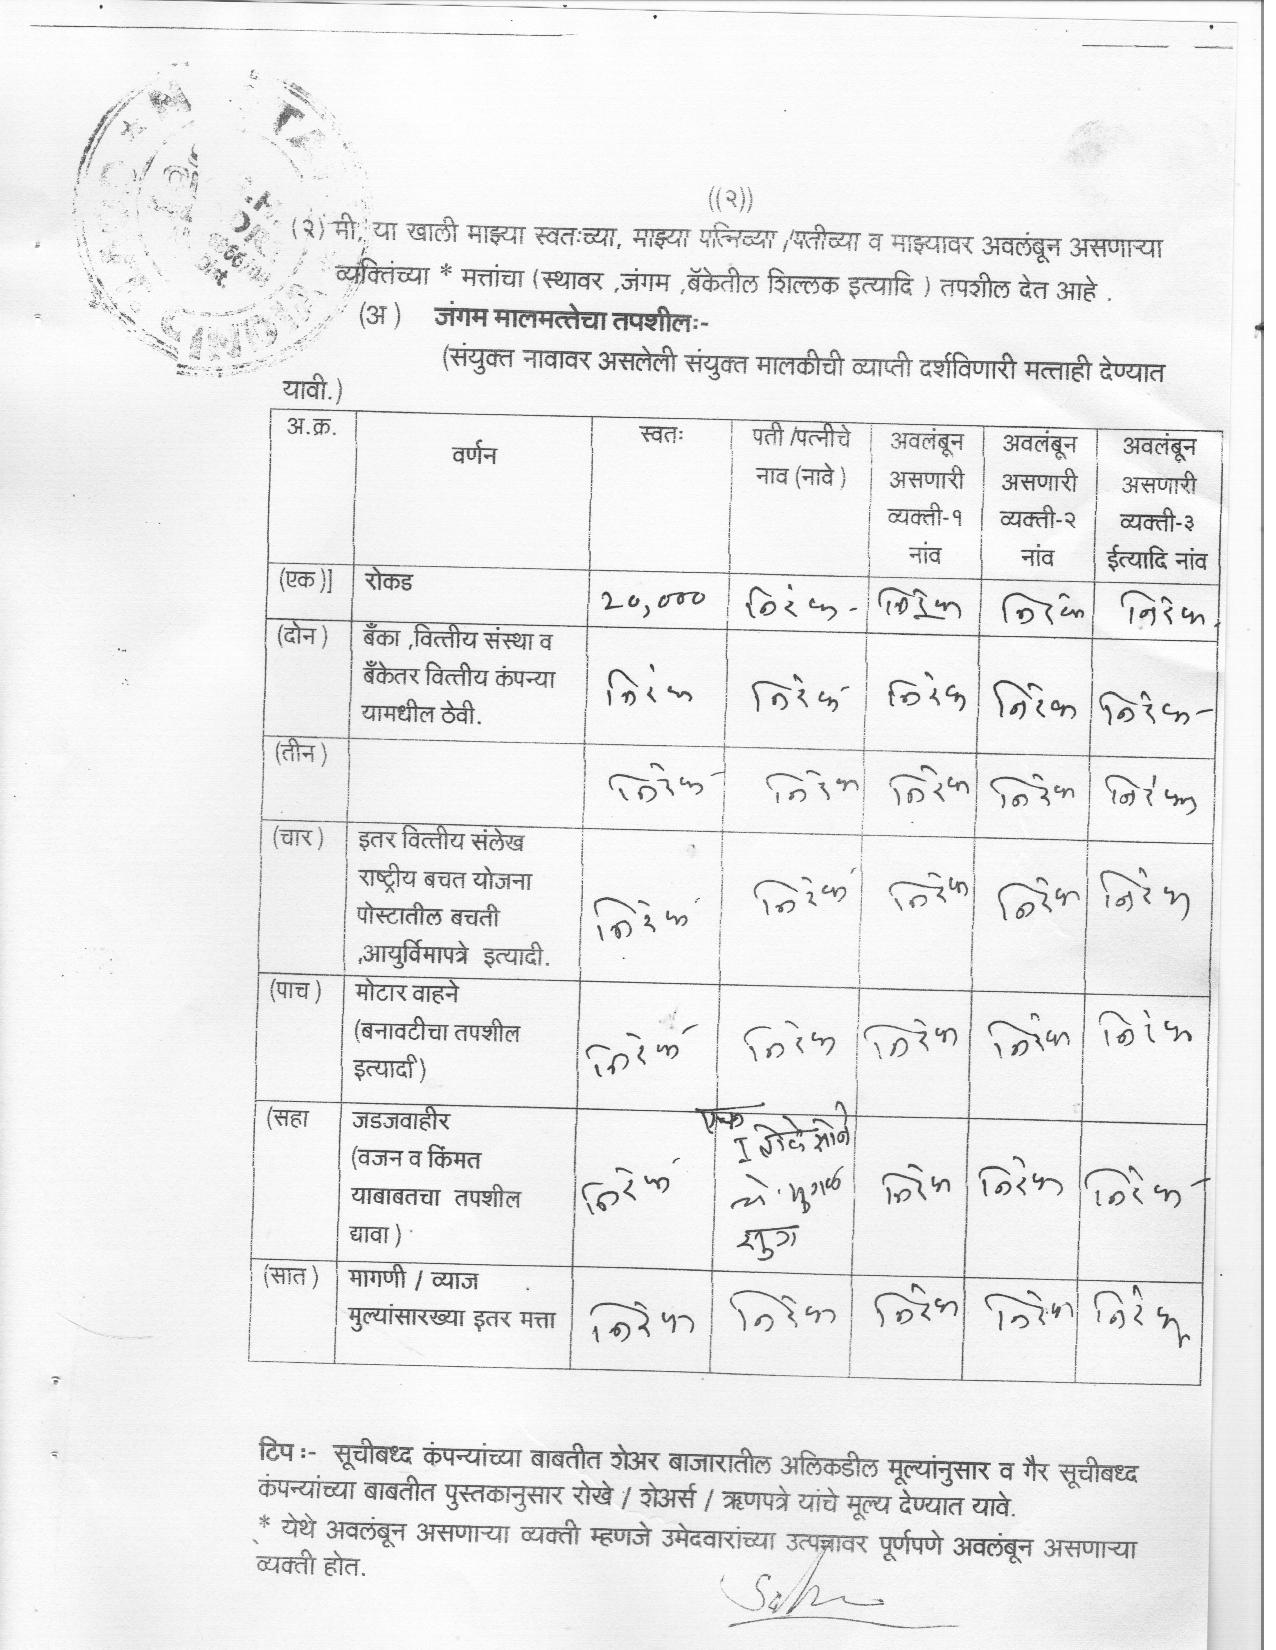 ((२))
(२) मी, या खाली माझ्या स्वतःच्या, माझ्या पत्निच्या /पतीच्या व माझ्यावर अवलंबून असणाऱ्या
व्यक्तिंच्या * मत्तांचा (स्थावर ,जंगम ,बॅकेतील शिल्लक इत्यादि ) तपशील देत आहे .
(अ ) जंगम मालमत्तेचा तपशीलः-
(संयुक्त नावावर असलेली संयुक्त मालकीची व्याप्ती दर्शविणारी मत्ताही देण्यात
यावी.)
अ.क्र. वर्णन स्वतः पती /पत्नीचे अवलंबून अवलंबून अवलंबून
नाव (नावे ) असणारी असणारी असणारी
व्यक्ती-१ व्यक्ती-२ व्यक्ती-३
नांव नांव ईत्यादि नांव
(एक)] रोकड 20,000 निरंक निरंक निरंक निरंक
(दोन ) बँका ,वित्तीय संस्था व
बँकेतर वित्तीय कंपन्या निरंक निरंक निरंक निरंक निरंक
यामधील ठेवी.
(तीन ) निरंक निरंक निरंक निरंक निरंक
(चार ) इतर वित्तीय संलेख
राष्ट्रीय बचत योजना
पोस्टातील बचती निरंक निरंक निरंक निरंक निरंक
,आयुर्विमापत्रे इत्यादी.
(पाच ) मोटार वाहने
(बनावटीचा तपशील निरंक निरंक निरंक निरंक निरंक
इत्यादी)
(सहा जडजवाहीर एक
(वजन व किंमत
याबाबतचा तपशील निरंक निरंक निरंक निरंक
द्यावा )
(सात ) मागणी / व्याज
मुल्यांसारख्या इतर मत्ता निरंक निरंक निरंक निरंक निरंक
टिप :- सूचीबध्द कंपन्यांच्या बाबतीत शेअर बाजारातील अलिकडील मूल्यांनुसार व गैर सूचीबध्द
कंपन्यांच्या बाबतीत पुस्तकानुसार रोखे / शेअर्स / ऋणपत्रे यांचे मूल्य देण्यात यावे.
* येथे अवलंबून असणाऱ्या व्यक्ती म्हणजे उमेदवारांच्या उत्पन्नावर पूर्णपणे अवलंबून असणाऱ्या
व्यक्ती होत.